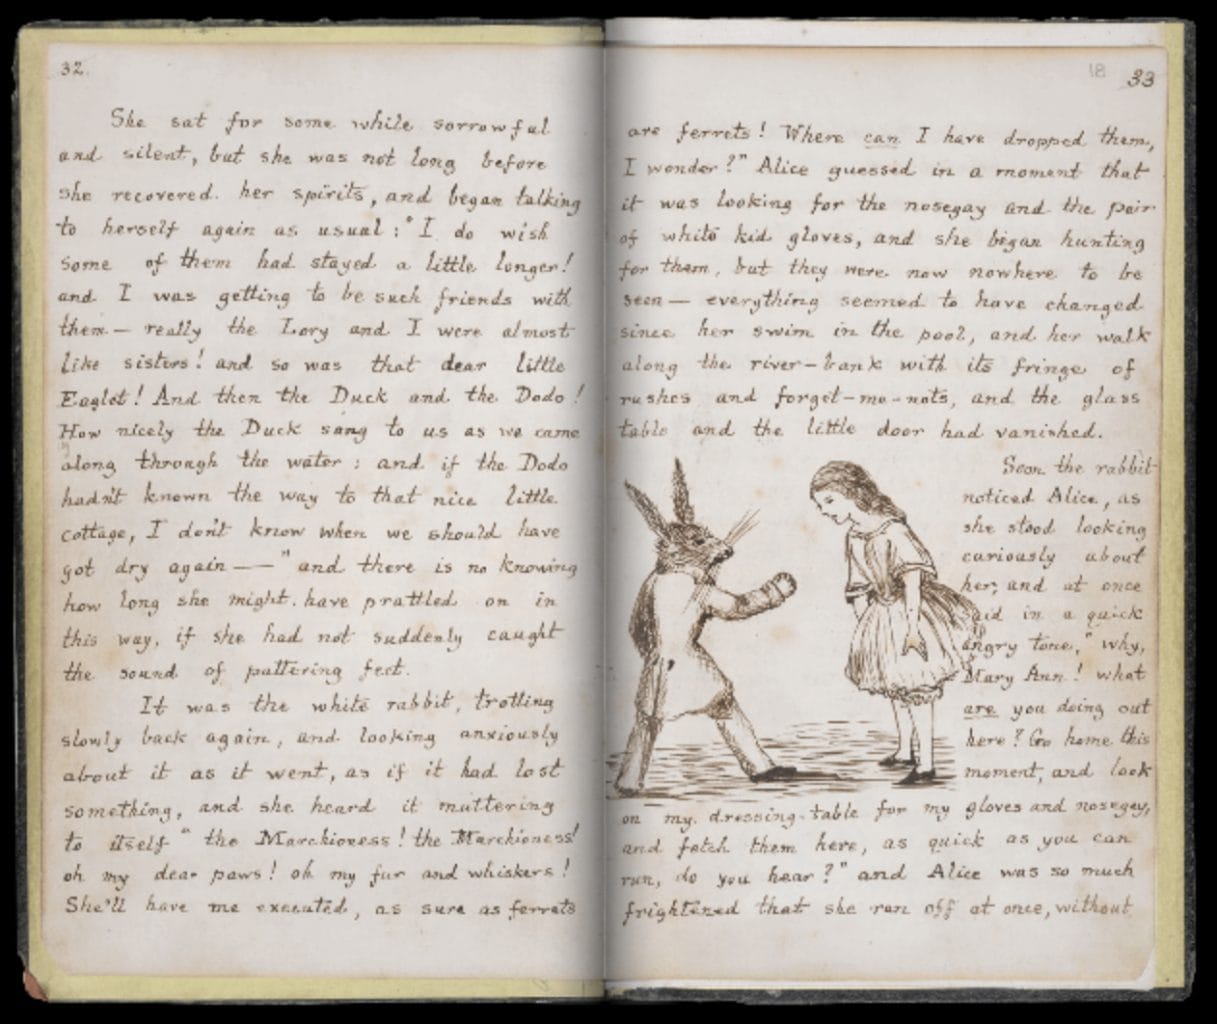 32.
She sat for some while sorrowful
and silent, but she was not long before
she recovered her spirits, and began talking
to herself again as usual: "I do wish
some of them had stayed a little longer!
and I was getting to be such friends with
them — really the Lory and I were almost
like sisters! and so was that dear little
Eaglet! And then the Duck and the Dodo!
How nicely the Duck sang to us as we came
along through the water: and if the Dodo
hadn't known the way to that nice little
cottage, I don't know when we should have
got dry again ——" and there is no knowing
how long she might have prattled on in
this way, if she had not suddenly caught
the sound of pattering feet.
It was the white rabbit, trotting
slowly back again, and looking anxiously
about it as it went, as if it had lost
something, and she heard it muttering
to itself "the Marchioness! the Marchioness!
oh my dear paws! oh my fur and whiskers!
She'll have me executed, as sure as ferrets
18
33
are ferrets! Where can I have dropped them,
I wonder?" Alice guessed in a moment that
it was looking for the nosegay and the pair
of white kid gloves, and she began hunting
for them, but they were now nowhere to be
seen — everything seemed to have changed
since her swim in the pool, and her walk
along the river-bank with its fringe of
rushes and forget-me-nots, and the glass
table and the little door had vanished.
Soon the rabbit
noticed Alice, as
she stood looking
curiously about
her, and at once
said in a quick
angry tone, "why,
Mary Ann! what
are you doing out
here? Go home this
moment, and look
on my dressing-table for my gloves and nosegay,
and fetch them here, as quick as you can
run, do you hear?" and Alice was so much
frightened that she ran off at once, without